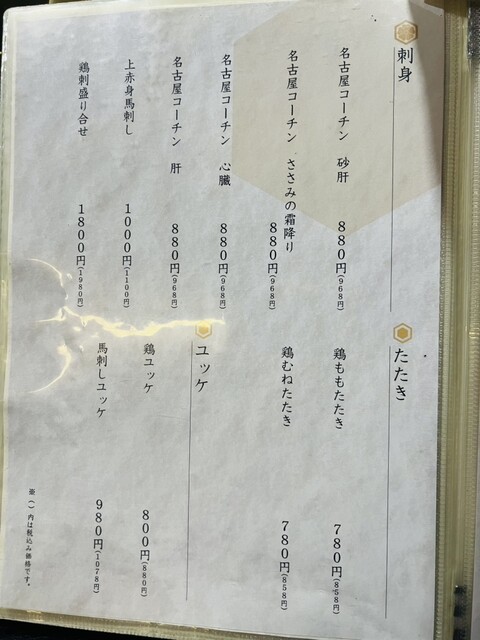 刺身
名古屋コーチン 砂肝 880円(968円)
名古屋コーチン ささみの霜降り 880円(968円)
名古屋コーチン 心臓 880円(968円)
名古屋コーチン 肝 880円(968円)
上赤身馬刺し 1000円(1100円)
鶏刺盛り合せ 1800円(1980円)
たたき
鶏ももたたき 780円(858円)
鶏むねたたき 780円(858円)
ユッケ
鶏ユッケ 800円(880円)
馬刺しユッケ 980円(1078円)
※()内は税込み価格です。